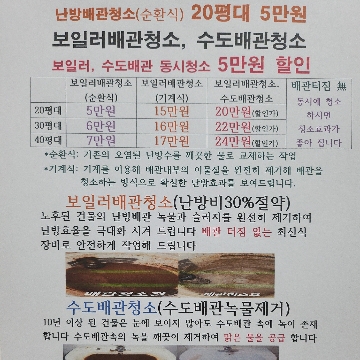 난방배관청소(순환식) 20평대 5만원
보일러배관청소, 수도배관청소
보일러, 수도배관 동시청소 5만원 할인
보일러배관청소 (순환식) 보일러배관청소 (기계식) 보일러배관청소, 수도배관청소 배관터짐 無
20평대 5만원 15만원 20만원(할인가) 동시에 청소
30평대 6만원 16만원 22만원(할인가) 하시면
40평대 7만원 17만원 24만원(할인가) 청소효과가
좋아 집니다
*순환식: 기존의 오염된 난방수를 깨끗한 물로 교체하는 작업
*기계식: 기계를 이용해 배관내부의 이물질을 완전히 제거해 배관을
청소하는 방식으로 확실한 난방효과를 보여드립니다.
보일러배관청소(난방비30%절약)
노후된 건물의 난방배관 녹물과 슬러지를 완전히 제거하여
난방효율을 극대화 시켜 드립니다 배관 터짐 없는 최신식
장비로 안전하게 작업해 드립니다
배관청소전
수도배관청소(수도배관녹물제거)
10년 이상 된 건물은 눈에 보이지 않아도 수도배관 속에 녹이 존재
합니다 수도배관속의 녹을 깨끗이 제거하여 맑은 물을 공급 합니다